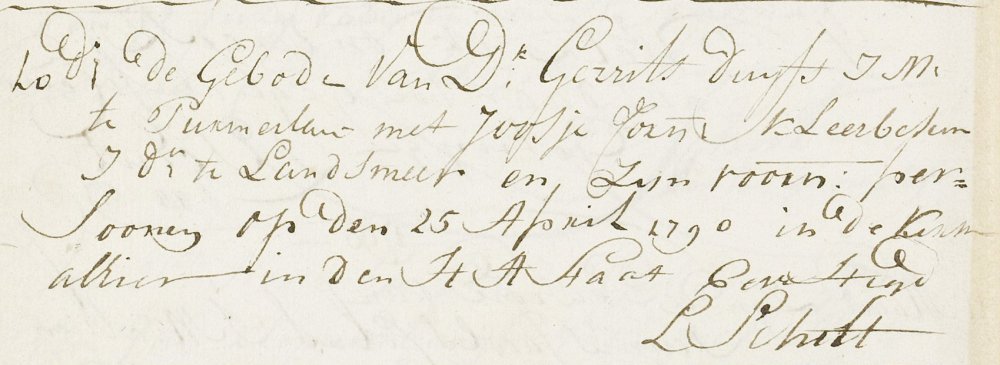 de Gebode van Dk. Gerrits duyfs J M:
te Purmerlan met Joosje Corn: kLeerbesem
J dr te Landsmeer en zijn voorn: per=
soonen op den 25 April 1790 in de kerk
alhier in den H H Staat bevestigd
L Schelt